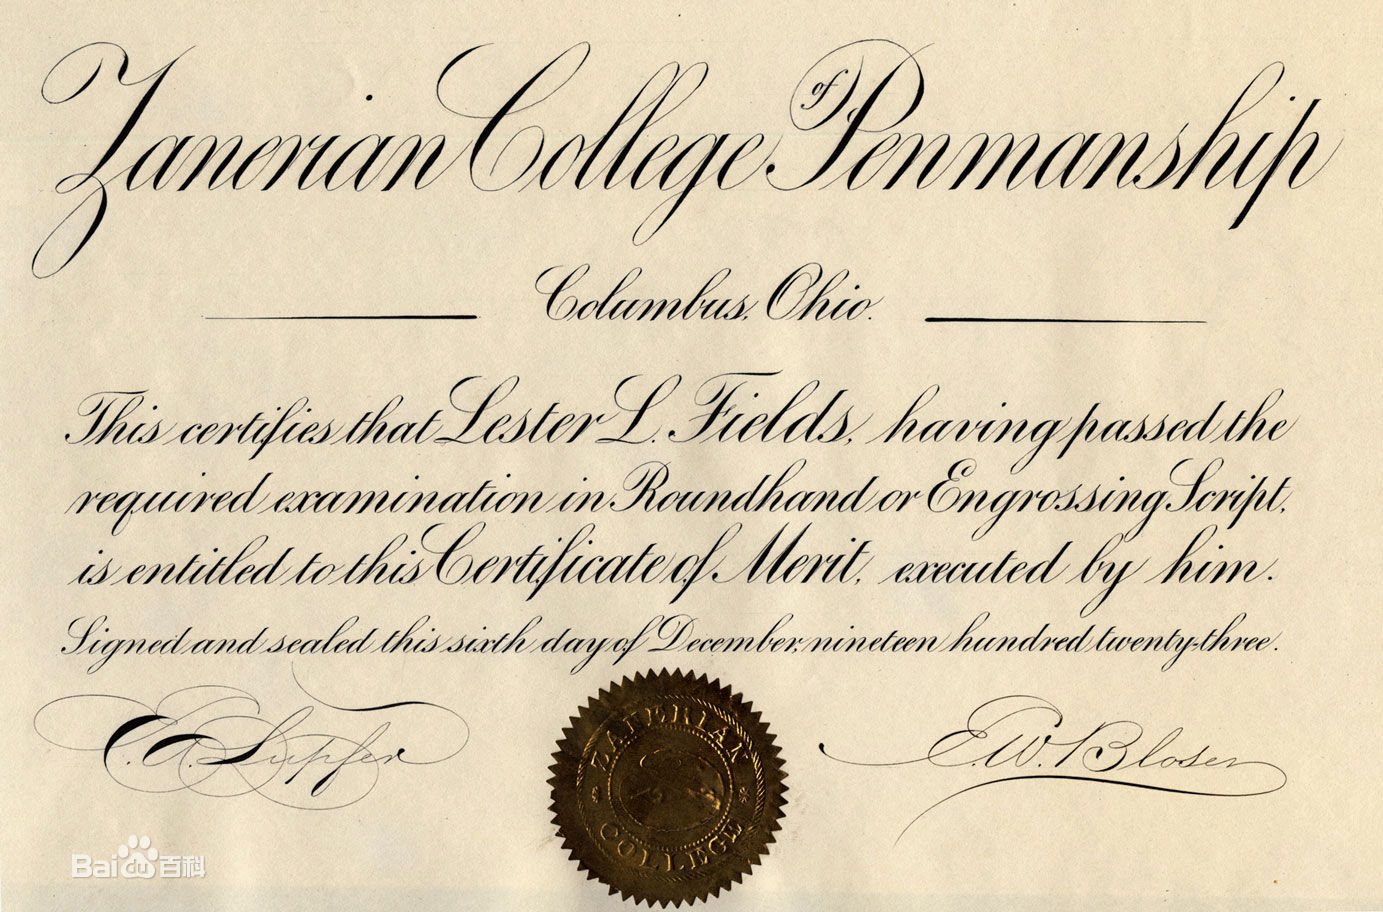 Zanerian College of Penmanship
Columbus, Ohio.
This certifies that Lester L. Fields, having passed the
required examination in Roundhand or Engrossing Script,
is entitled to this Certificate of Merit, executed by him.
Signed and sealed this sixth day of December, nineteen hundred twenty-three.
E.A. Lupfer
E.W. Bloser
ZANERIAN
COLLEGE
Baidu百科